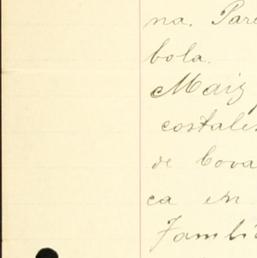 na. Par
bola.
Maiz
costales
de Cova
ca en
Famili